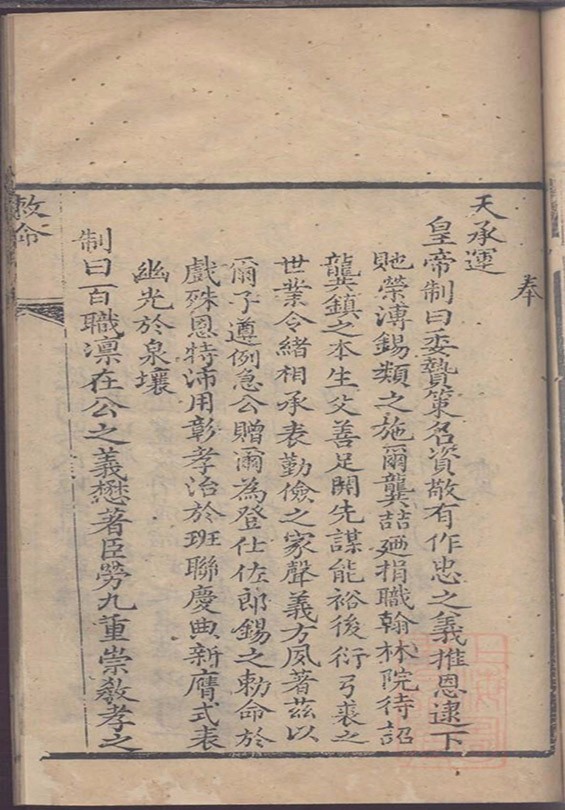 奉
天承運
皇帝制曰委贄策名資敬有作忠之義推恩逮下
貤榮溥錫類之施爾龔喆廼捐職翰林院待詔
龔鎮之本生父善足開先謀能裕後衍弓裘之
世業令緒相承表勤儉之家聲義方夙著茲以
爾子遵例急公贈爾為登仕佐郎錫之勅命於
戲殊恩特沛用彰孝治於班聯慶典新膺式表
幽光於泉壤
制曰百職凜在公之義懋著臣勞九重崇敎孝之
敕命